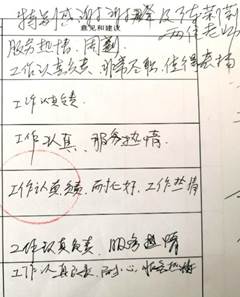 特别感谢
两位老师
意见和建议
服务热情、周到
工作认真负责、非常尽职、值得表扬
工作认真负责
工作认真、服务热情
工作认真负责、态度好、工作热情
工作认真负责、服务热情
工作认真负责、耐心、服务热情